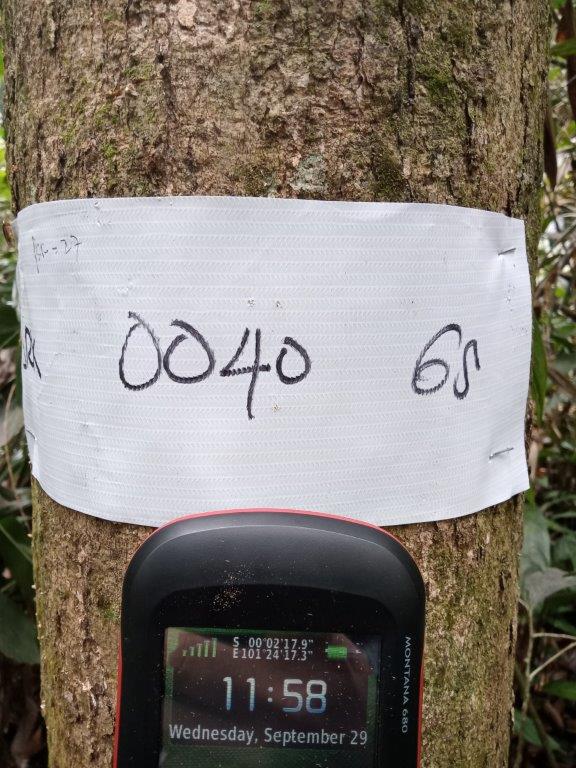 0040 6s
S 00°02'17.9"
E101°24'17.3"
11:58
Wednesday, September 29
MONTANA 680